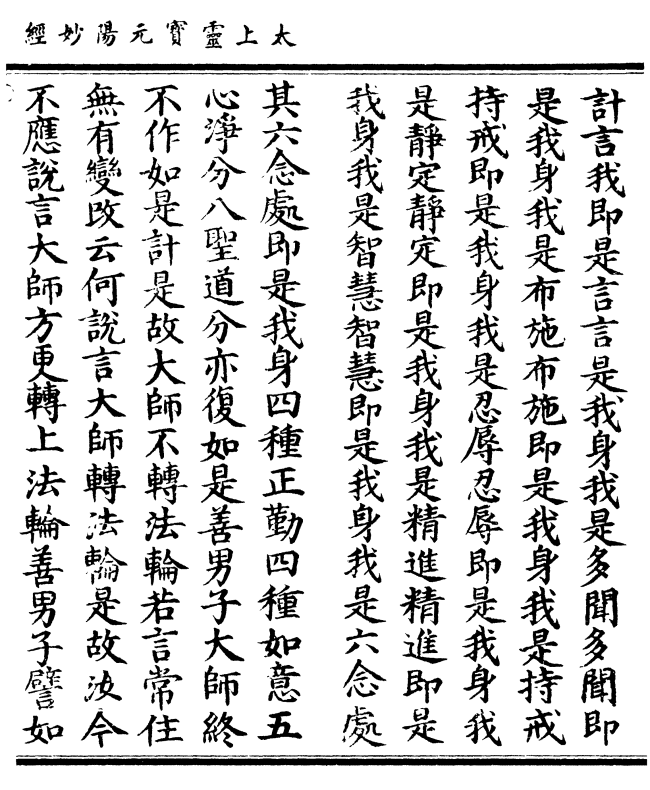 太上靈寳元陽妙經
計言我即是言言是我身我是多聞多聞即
是我身我是布施布施即是我身我是持戒
持戒即是我身我是忍辱忍辱即是我身我
是靜定靜定即是我身我是精進精進即是
我身我是智慧智慧即是我身我是六念處
其六念處即是我身四種正勤四種如意五
心淨分八聖道分亦復如是善男子大師終
不作如是計是故大師不轉法輪若言常住
無有變改云何說言大師轉法輪是故汝今
不應說言大師方更轉上法輪善男子譬如